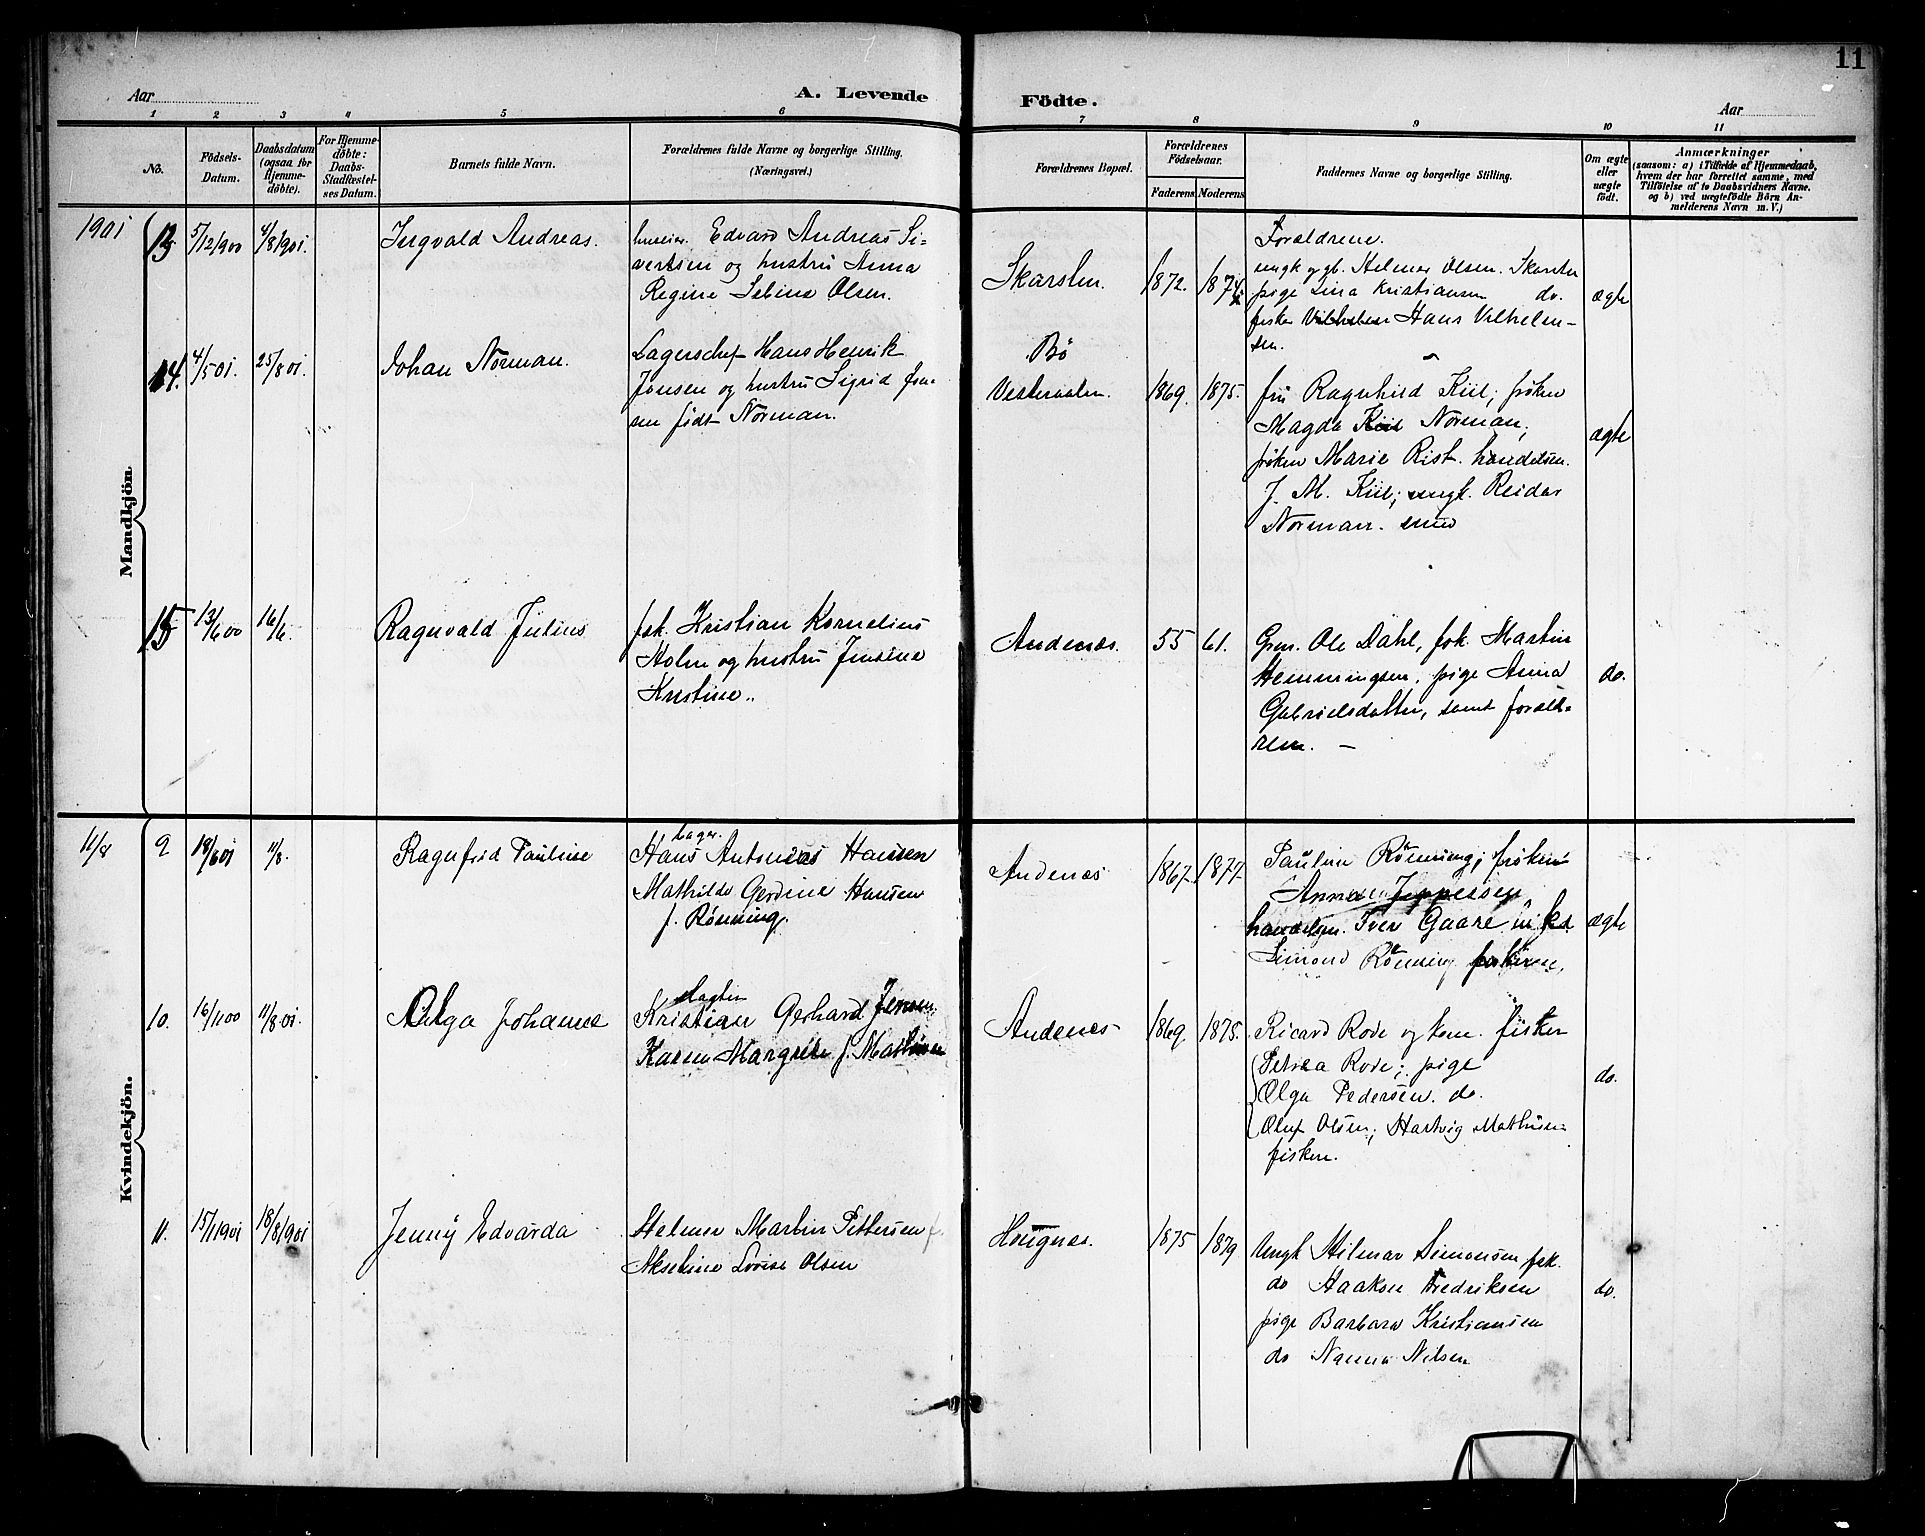 11
Aar
A. Levende
Födte.
Aar
1 2 3 4 5 6 7 8 9 10 11
No.
Födsels-
Datum.
Daabsdatum
(ogsaa for
Hjemme-
døbte).
For Hjemme-
døbte:
Daabs-
Stadfæstel-
ses Datum.
Barnets fulde Navn.
Forældrenes fulde Navne og borgerlige Stilling.
(Næringsvei.)
Forældrenes Bopæl.
Forældrenes
Fødselsaar.
Faderens Moderens
Faddernes Navne og borgerlige Stilling.
Om ægte
eller
uægte
født.
Anmærkninger
(saasom: a) i Tilfælde af Hjemmedaab,
hvem der har forrettet samme, med
Tilføielse af to Daabsvidners Navne.
og b) ved uægtefødte Börn An-
melderens Navn m. V.)
Mandkjön.
1901
13 5/12 1900 4/8 1901.
Ingvald Andreas.
Edvard Andreas Si-
vertsen og hustru Anna
Regine Sebine Olsen.
Skarsten.
1872. 1874.
Forældrene.
Helmer Olsen. Skarsten
pige Lina Kristiansen do.
fisker Hans Vilhelm-
sen.
ægte
14. 4/5 01. 25/8 01.
Johan Norman.
Lagerschef Hans Henrik
Jensen og hustru Sigrid Jen-
sen født Norman.
Bö
Vesteraalen.
1869. 1875.
fru Ragnhild Kiil; frøken
Magda Kiil Norman;
frøken Marie Rist. handelsm.
J. M. Kiil; ungk. Reidar
Norman.
ægte
15 13/6 00 16/6.
Ragnvald Julius
fsk. Kristian Kornelius
Holm og hustru Jensine
Kristine..
Andenæs.
55 61.
Grm. Ole Dahl, fsk. Martin
Hemmingsen, pige Anna
Gabrielsdatter, samt foræld-
rene. —
do.
Kvindekjön.
11/8
9 18/6 01 11/8.
Ragnfrid Pauline
Hans Antonius Hansen
Mathilde Gerdine Hansen
f. Rönning.
Andenæs
1867. 1877.
Pauline Rönning; frøken
Anna Jeppesen
handelsm. Iver Gaare
Simond Rönning
ægte
10. 16/1 00 11/8 01.
Alga Johanne
Kristian Gerhard Jensen
Karen Margrete f. Mathisen
Andenes
1869. 1875.
Ricard Rode og kone. fisker
Petrea Rode; pige
Olga Pedersen. do.
Oluf Olsen; Hartvig Mathisen
fiskere.
do.
11. 15/1 1901 18/8 1901
Jenny Edvarda
Helmer Martin Pettersen f.
Akseline Lovise Olsen
Hougnes.
1875 1879.
Ungk Hilmar Simonsen fsk.
do Haakon Fredriksen
pige Barbara Kristiansen
do Nanna Nilsen
do.